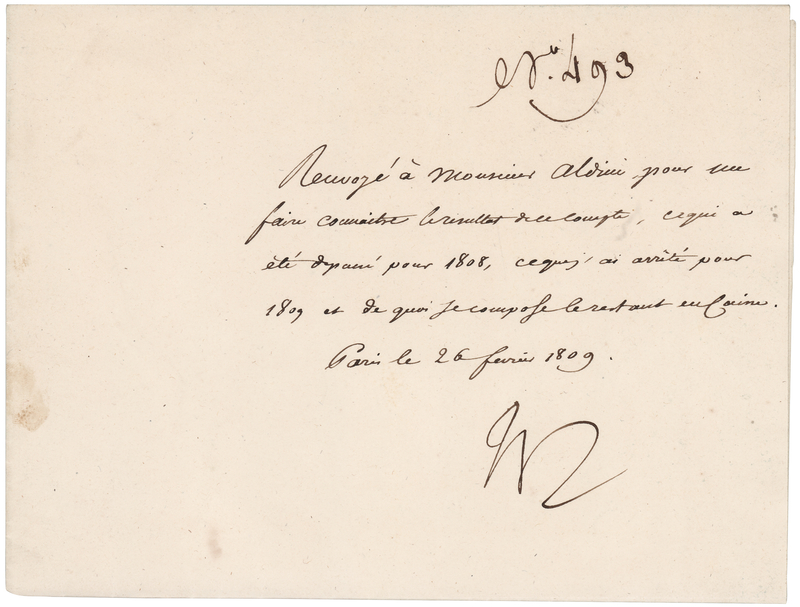 No. 493
Renvoyé à Monsieur Aldini, pour me
faire connaitre le resultat de ce Compte, ce qui a
été depensé pour 1808, ce que j'ai arrêté pour
1809 et de quoi se compose le restant en Caisse.
Paris le 26 fevrier 1809.
N